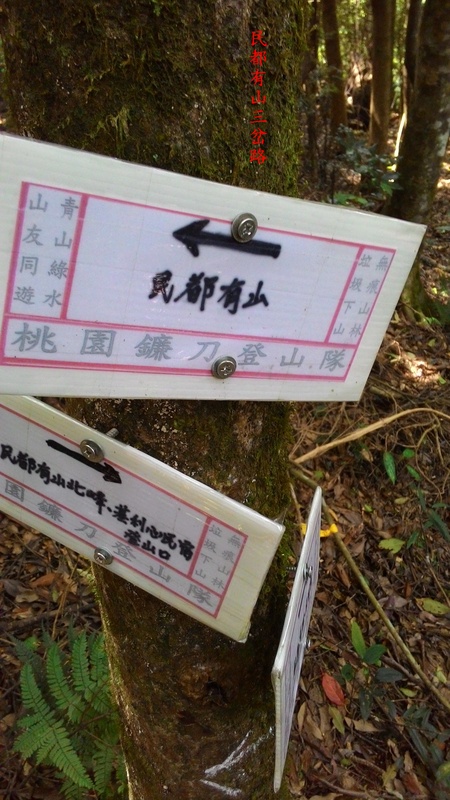 民都有山三岔路
青山綠水
山友同遊
民都有山
無痕山林
垃圾下山
桃園鐮刀登山隊
民都有山北峰、基利心呢富
登山口
無痕山林
垃圾下山
園鐮刀登山隊